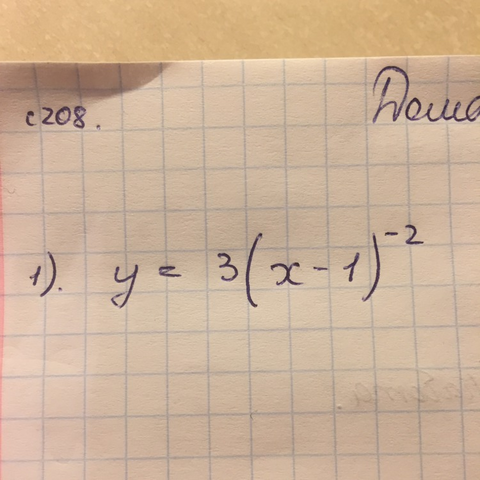 с208.
1). y = 3(x-1)⁻²